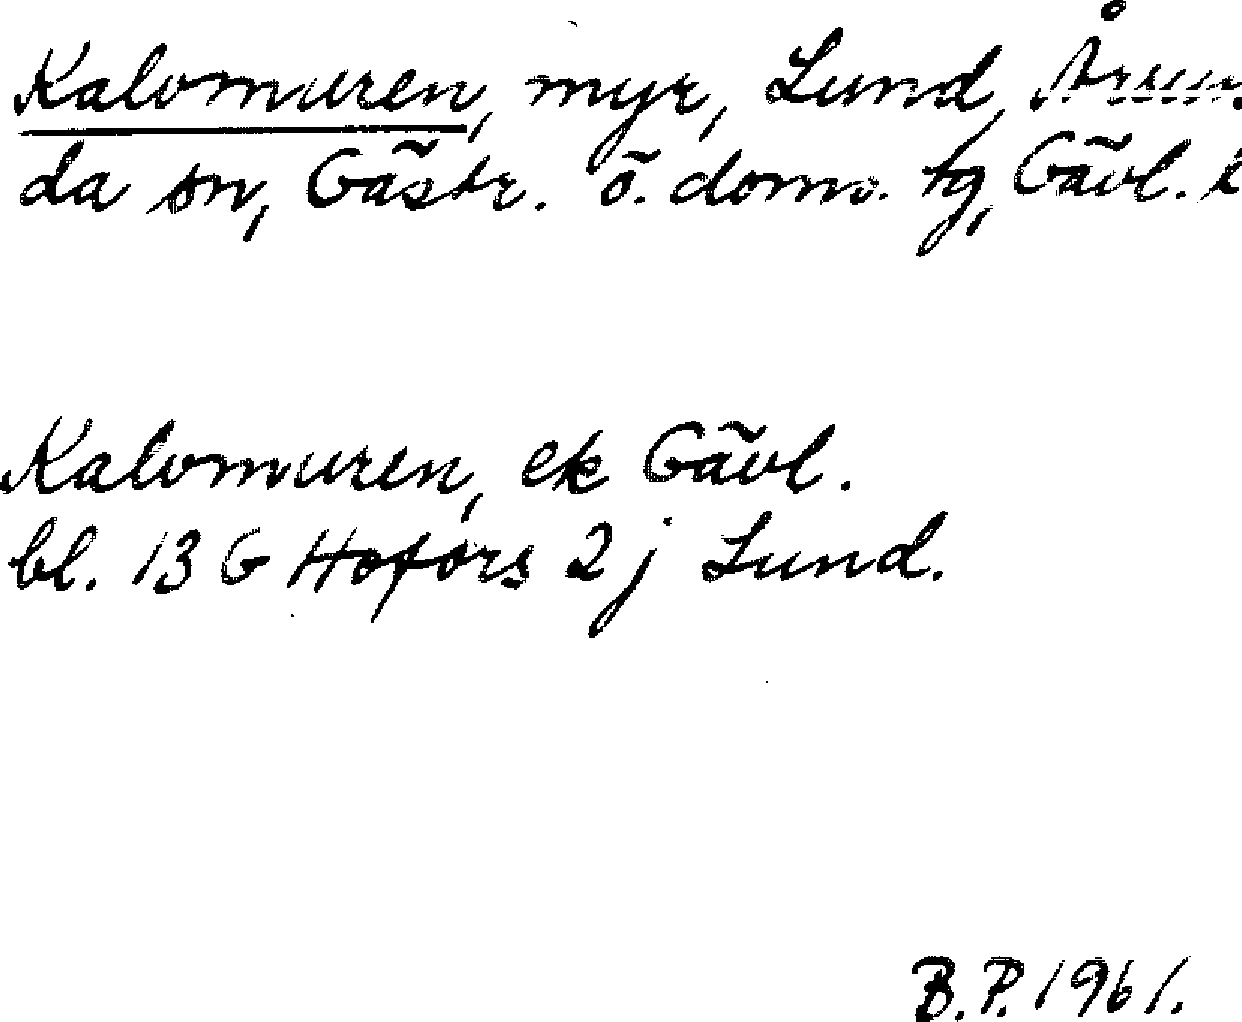 Kalvmuren, myr, Lund, Årsun-
da sn, Gästr. ö. doms. tg, Gävl. l
Kalvmuren, ek Gävl.
bl. 13 G Hofors 2 j Lund.
B.P. 1961.